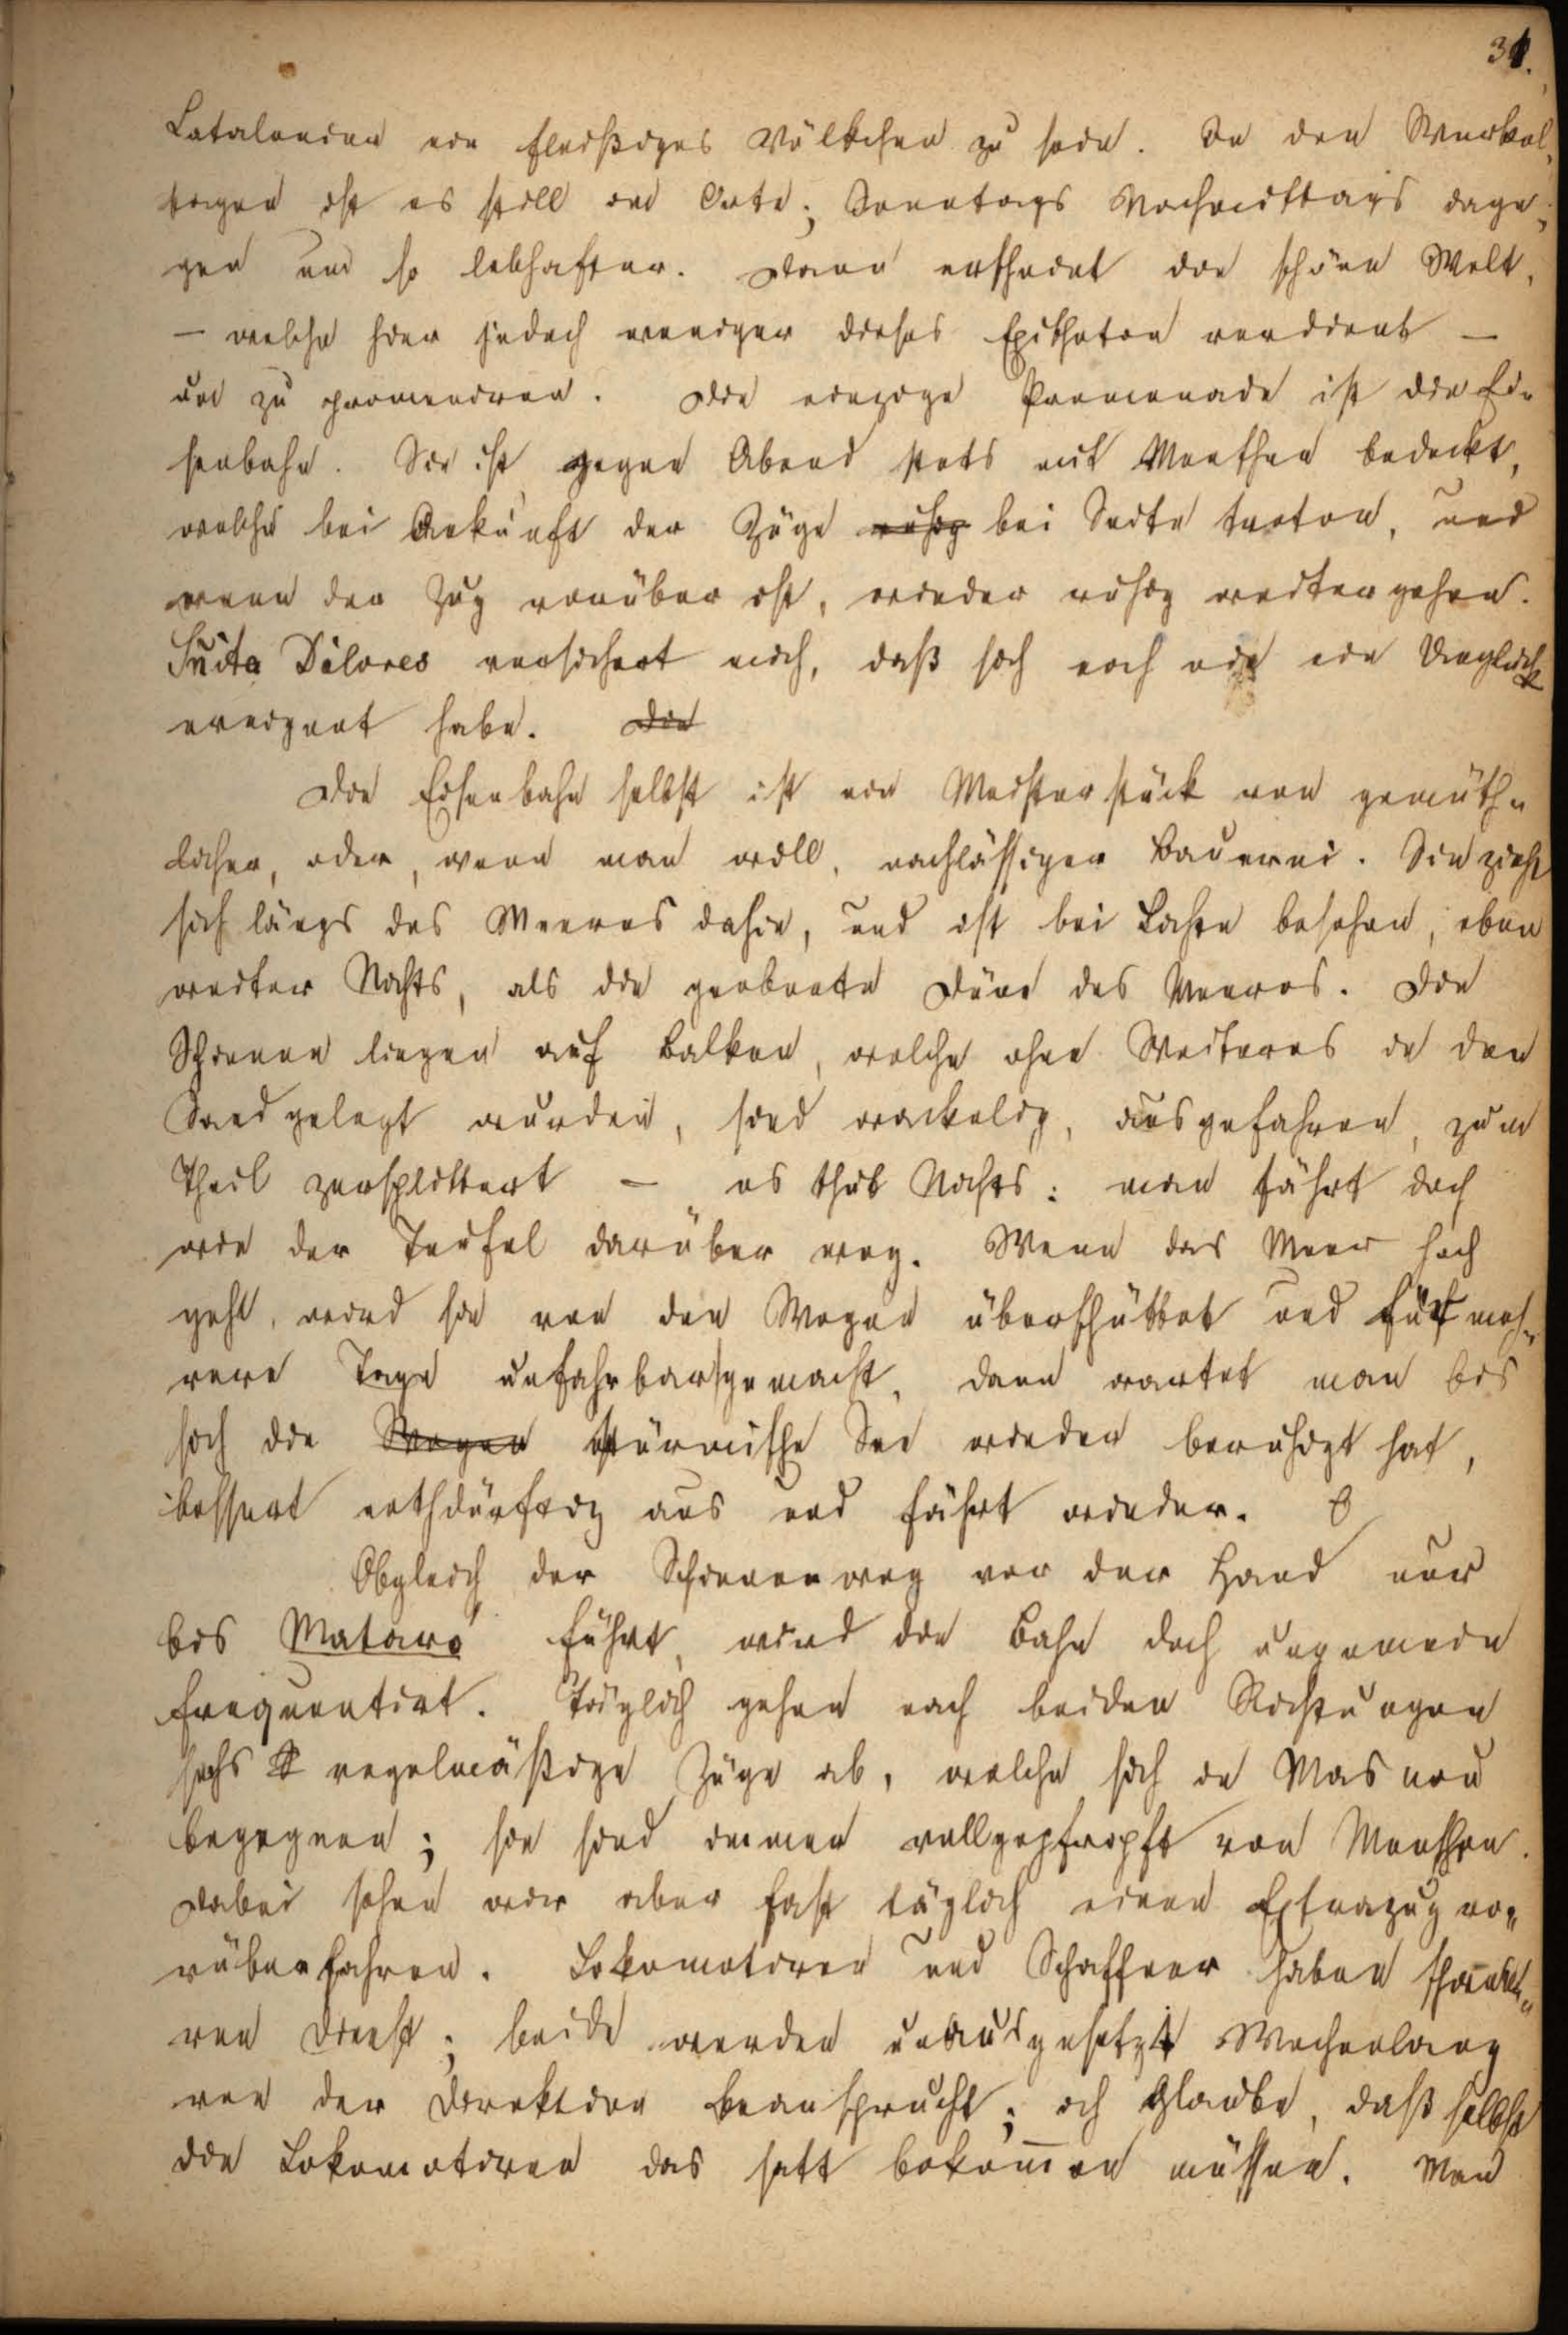 31.
Catalonien ein fleißiges Völkchen zu sein. In den Werkel-
tagen ist es still im Orte; Sonntags Nachmittags dage-
gen um so lebhafter. Dann erscheint die schöne Welt,
— welche hier jedoch weniger dieses Epitheton verdient —
um zu promeniren. Die einzige Promenade ist die Ei-
senbahn. Sie ist gegen Abend stets mit Menschen bedeckt,
welche bei Ankunft der Züge ruhig bei Seite treten, und
wenn der Zug vorüber ist, wieder ruhig weitergehen.
Sñita Dolores versichert mich, daß sich noch nie ein Unglück
ereignet habe. Die
Die Eisenbahn selbst ist ein Meisterstück von gemüth-
licher, oder, wenn man will, nachlässiger Bauerei. Sie zieht
sich längs des Meeres dahin, und ist bei Lichte besehen, eben
weiter Nichts, als die geebnete Düne des Meeres. Die
Schienen liegen auf Balken, welche ohne Weiteres in den
Sand gelegt wurden, sind wackelig, ausgefahren, zum
Theil zersplittert — es thut Nichts: man fährt doch
wie der Teufel darüber weg. Wenn das Meer hoch
geht, wird sie von den Wogen überschüttet und für meh-
rere Tage unfahrbar gemacht, dann wartet man bis
sich die Wogen stürmische See wieder beruhigt hat,
bessert nothdürftig aus und fährt wieder.
Obgleich der Schienenweg vor der Hand nur
bis Mataró führt, wird die Bahn doch ungemein
frequentirt. Täglich gehen nach beiden Richtungen
sechs regelmäßige Züge ab, welche sich in Masnou
begegnen; sie sind immer vollgepfropft von Menschen.
Dabei sehen wir aber fast täglich einen Extrazug vo-
rüberfahren. Lokomotiven und Schaffner haben
ren Dienst; beide werden unausgesetzt Wochenlang
von der Direktion beansprucht; ich glaube, daß selbst
die Lokomotiven das satt bekommen müssen. Man